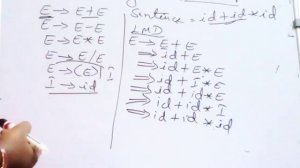 E → E + E
E → E - E
E → E * E
E → E / E
E → (E) I
I → id
Sentence = id + id * id
LMD
E → E + E
⇒ id + E
⇒ id + E * E
⇒ id + I * E
⇒ id + id * E
⇒ id + id * I
⇒ id + id * id